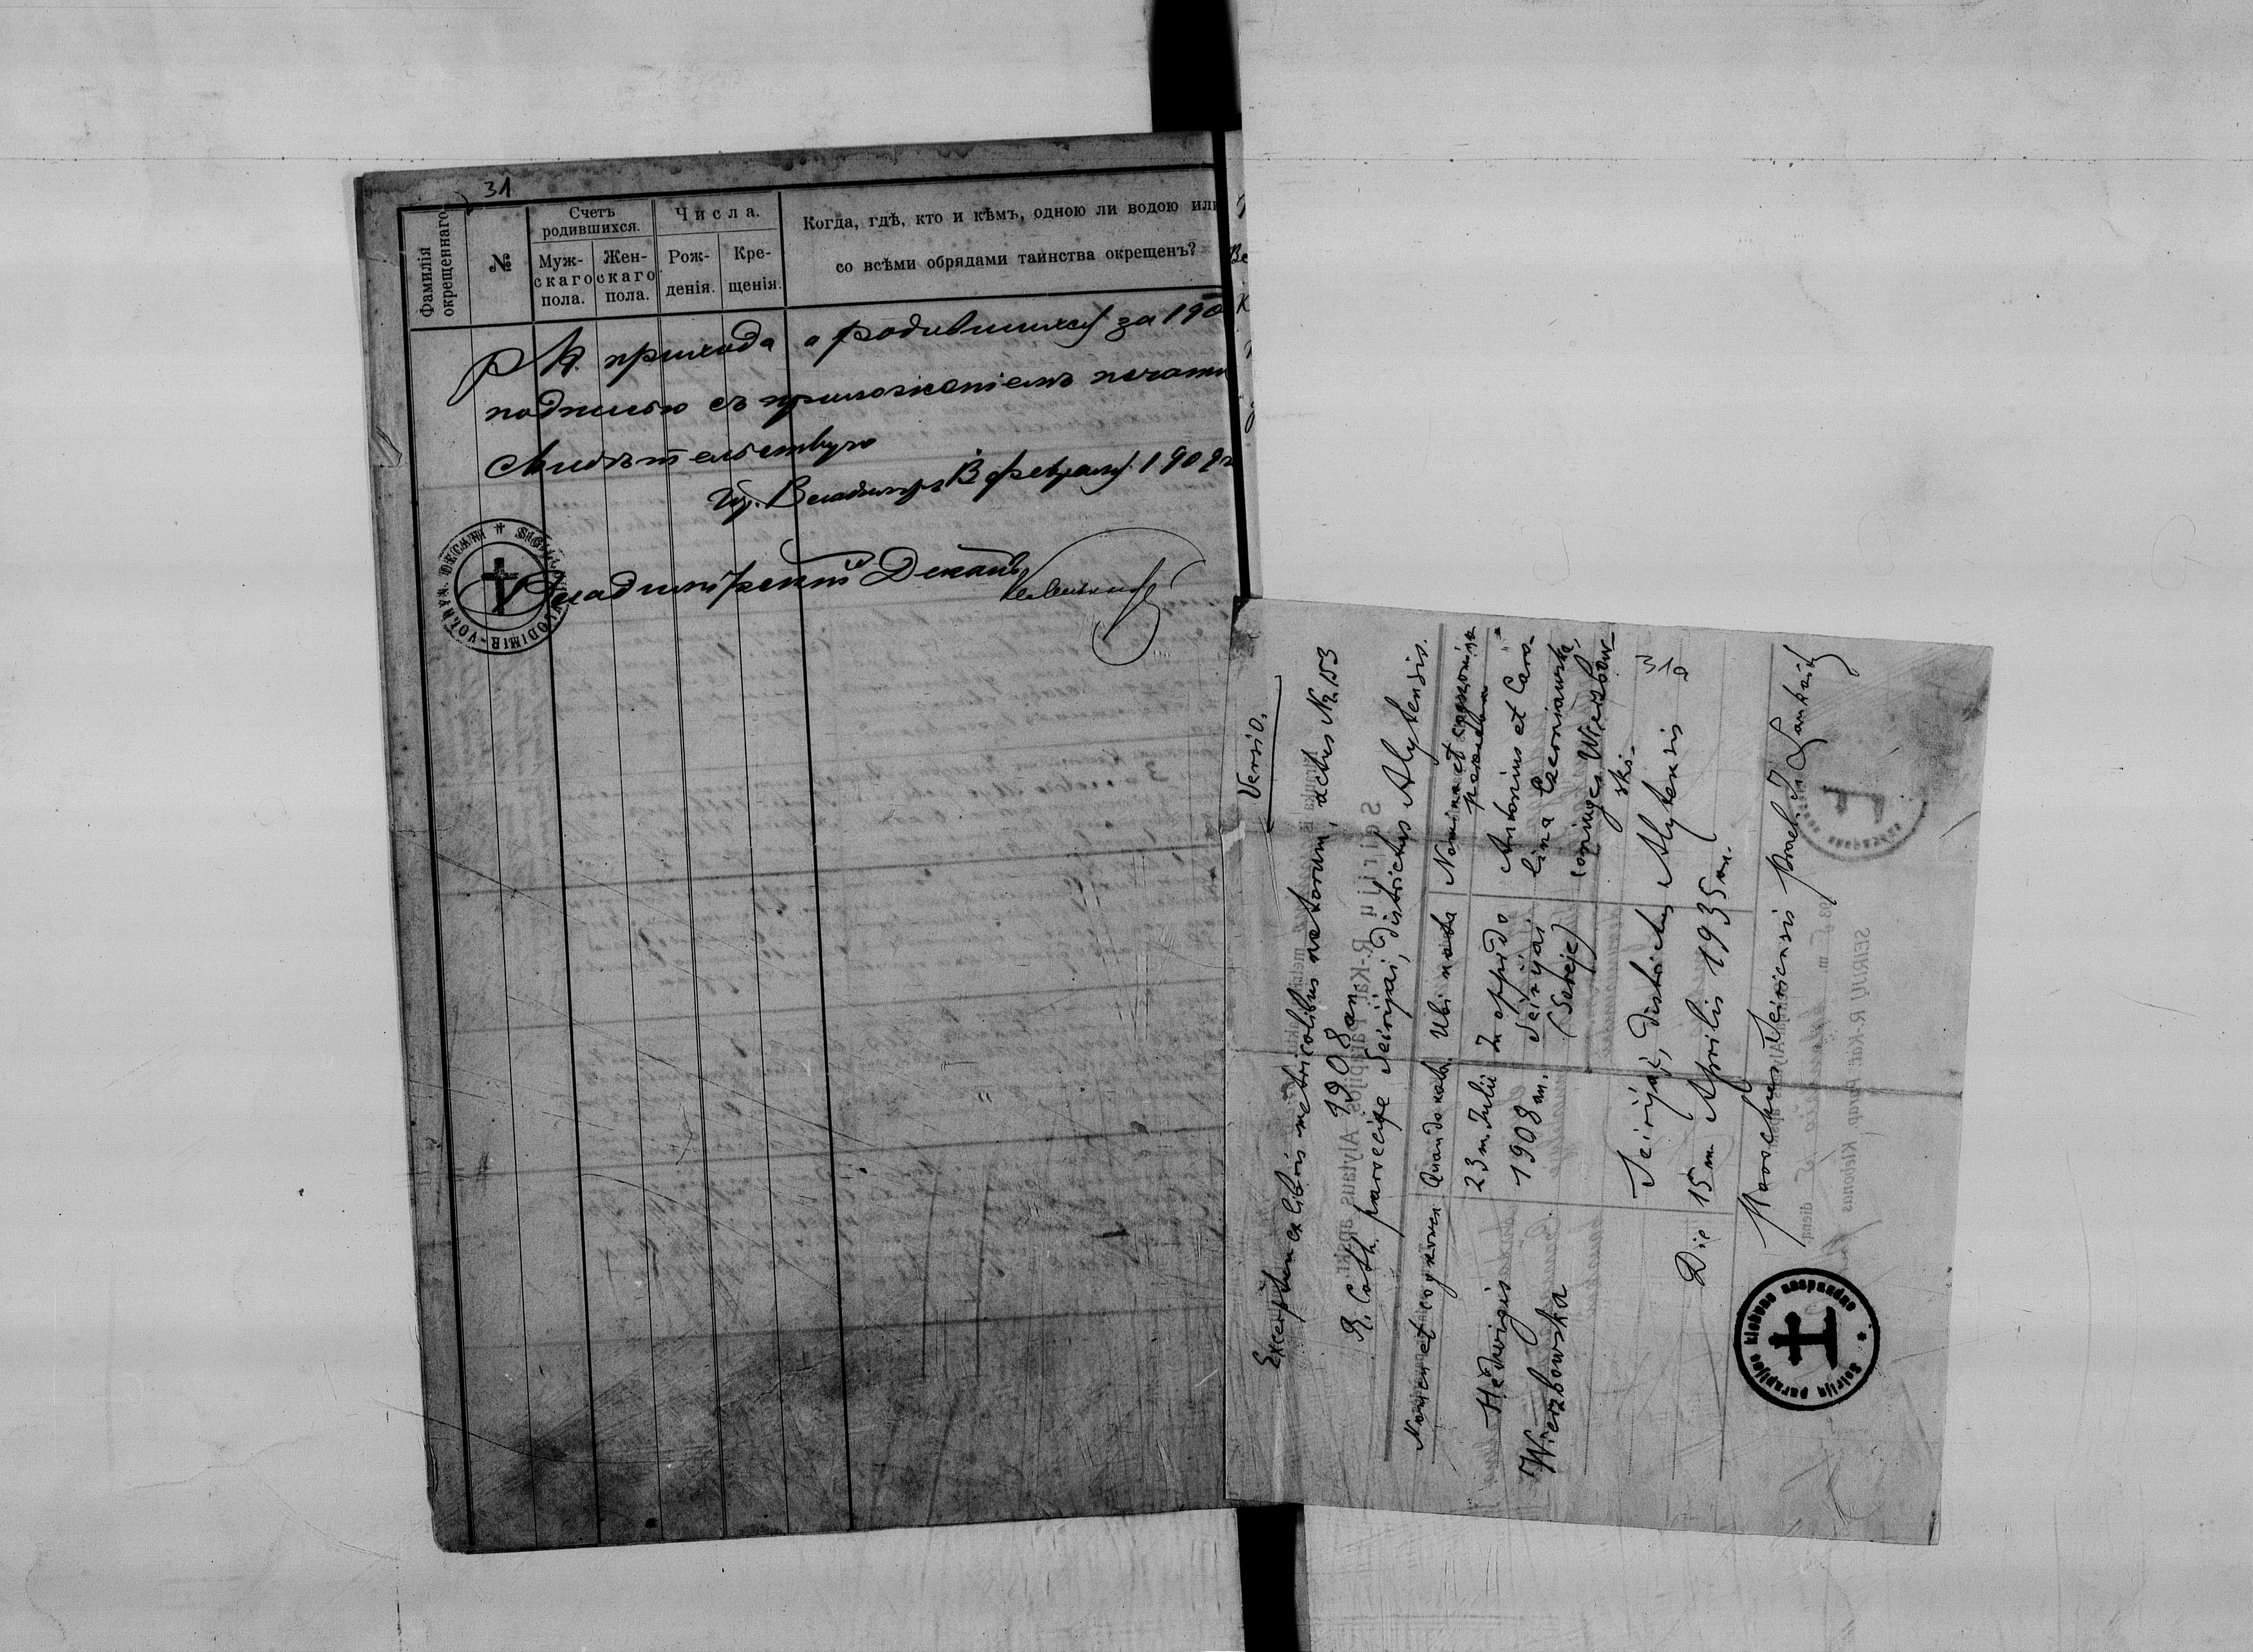 31
Фамилія окрещеннаго.
№
Счетъ родившихся.
Муж-скаго пола.
Жен-скаго пола.
Числа.
Рож-денія.
Кре-щенія.
Когда, гдѣ, кто и кѣмъ, одною ли водою или
со всѣми обрядами таинства окрещенъ?
Р К. прихода о родившихся за 190
подписью съ приложеніемъ печати
свидѣтельствую
февраля 1909
Владимірскій Деканъ
Versio.
Excerptum ex libris metricalibus natorum, actus № 153
1908 an.
R. Cath. paroeciae Seirijai, districtus Alytensis.
Nomen et cognomen
Quando nata.
Ubi nata
Nomina et cognomina
parentum
Hedvigis
Wierzbowska
23 m. Julii
1908 m.
In oppido
Seirijai
(Sereje)
Antonius et Caro-
lina Czerniawska,
coniuges Wierzbow-
ski.
31a
Seirijai, Districtus Alytensis
Die 15 m. Aprilis 1935 m.
Parochus Seiriensis
Seirijų parapijos klebono antspaudas